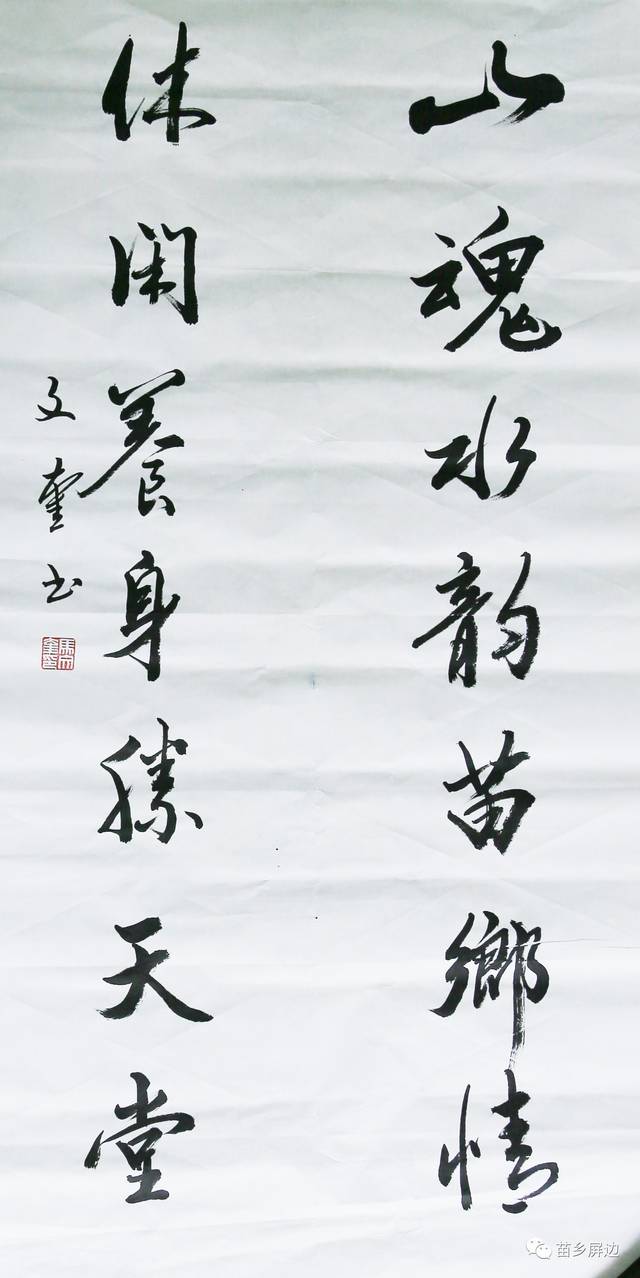 山魂水韵苗鄉情
休闲養身勝天堂
文奎书
苗乡屏边